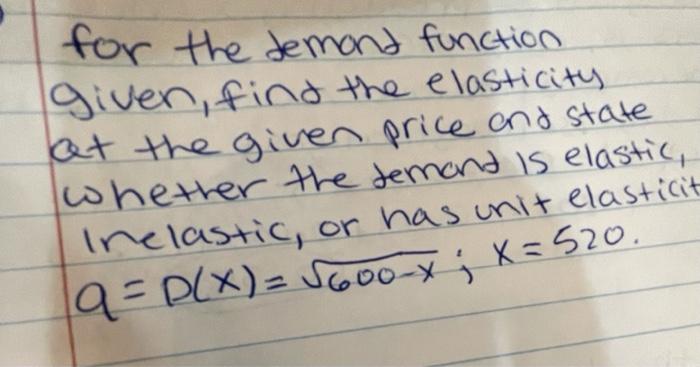 for the demand function
given, find the elasticity
at the given price and state
whether the demand is elastic,
Inelastic, or has unit elasticit
q = D(X) = √600-x ; X = 520.